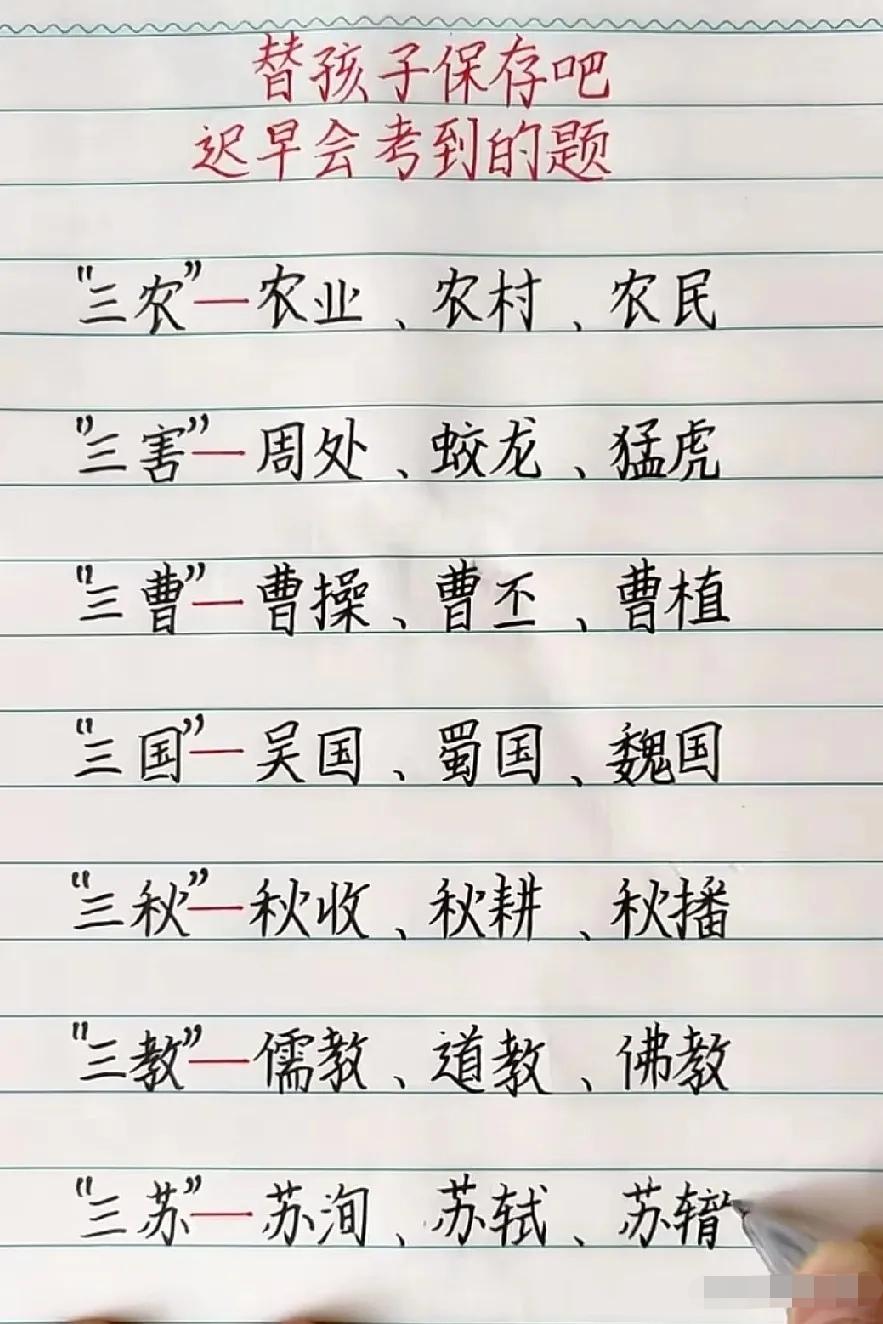 替孩子保存吧
迟早会考到的题
“三农”—农业、农村、农民
“三害”—周处、蛟龙、猛虎
“三曹”—曹操、曹丕、曹植
“三国”—吴国、蜀国、魏国
“三秋”—秋收、秋耕、秋播
“三教”—儒教、道教、佛教
“三苏”—苏洵、苏轼、苏辖